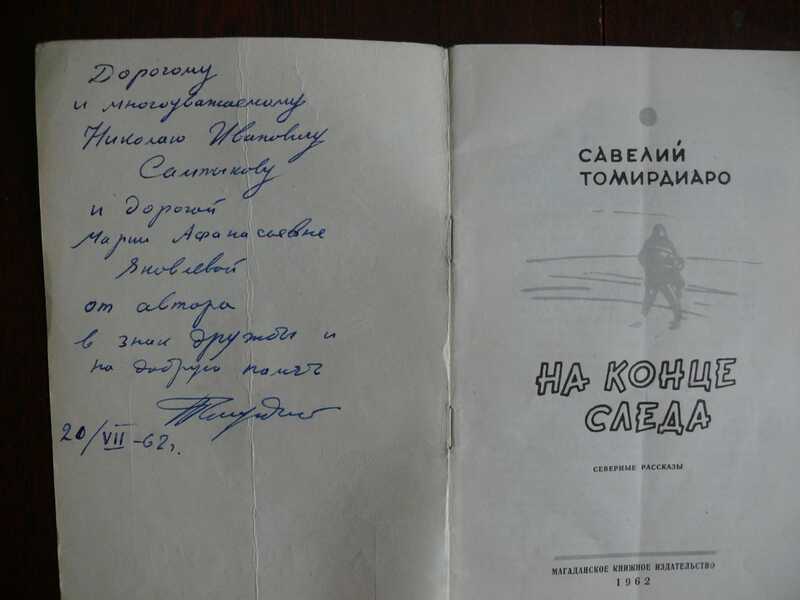 Дорогому
и многоуважаемому
Николаю Ивановичу
и дорогой
Марии Афанасьевне
Яковлевой
от автора
в знак дружбы и
на добрую память
20/VII-62г.
САВЕЛИЙ
ТОМИРДИАРО
НА КОНЦЕ
СЛЕДА
СЕВЕРНЫЕ РАССКАЗЫ
МАГАДАНСКОЕ КНИЖНОЕ ИЗДАТЕЛЬСТВО
1962